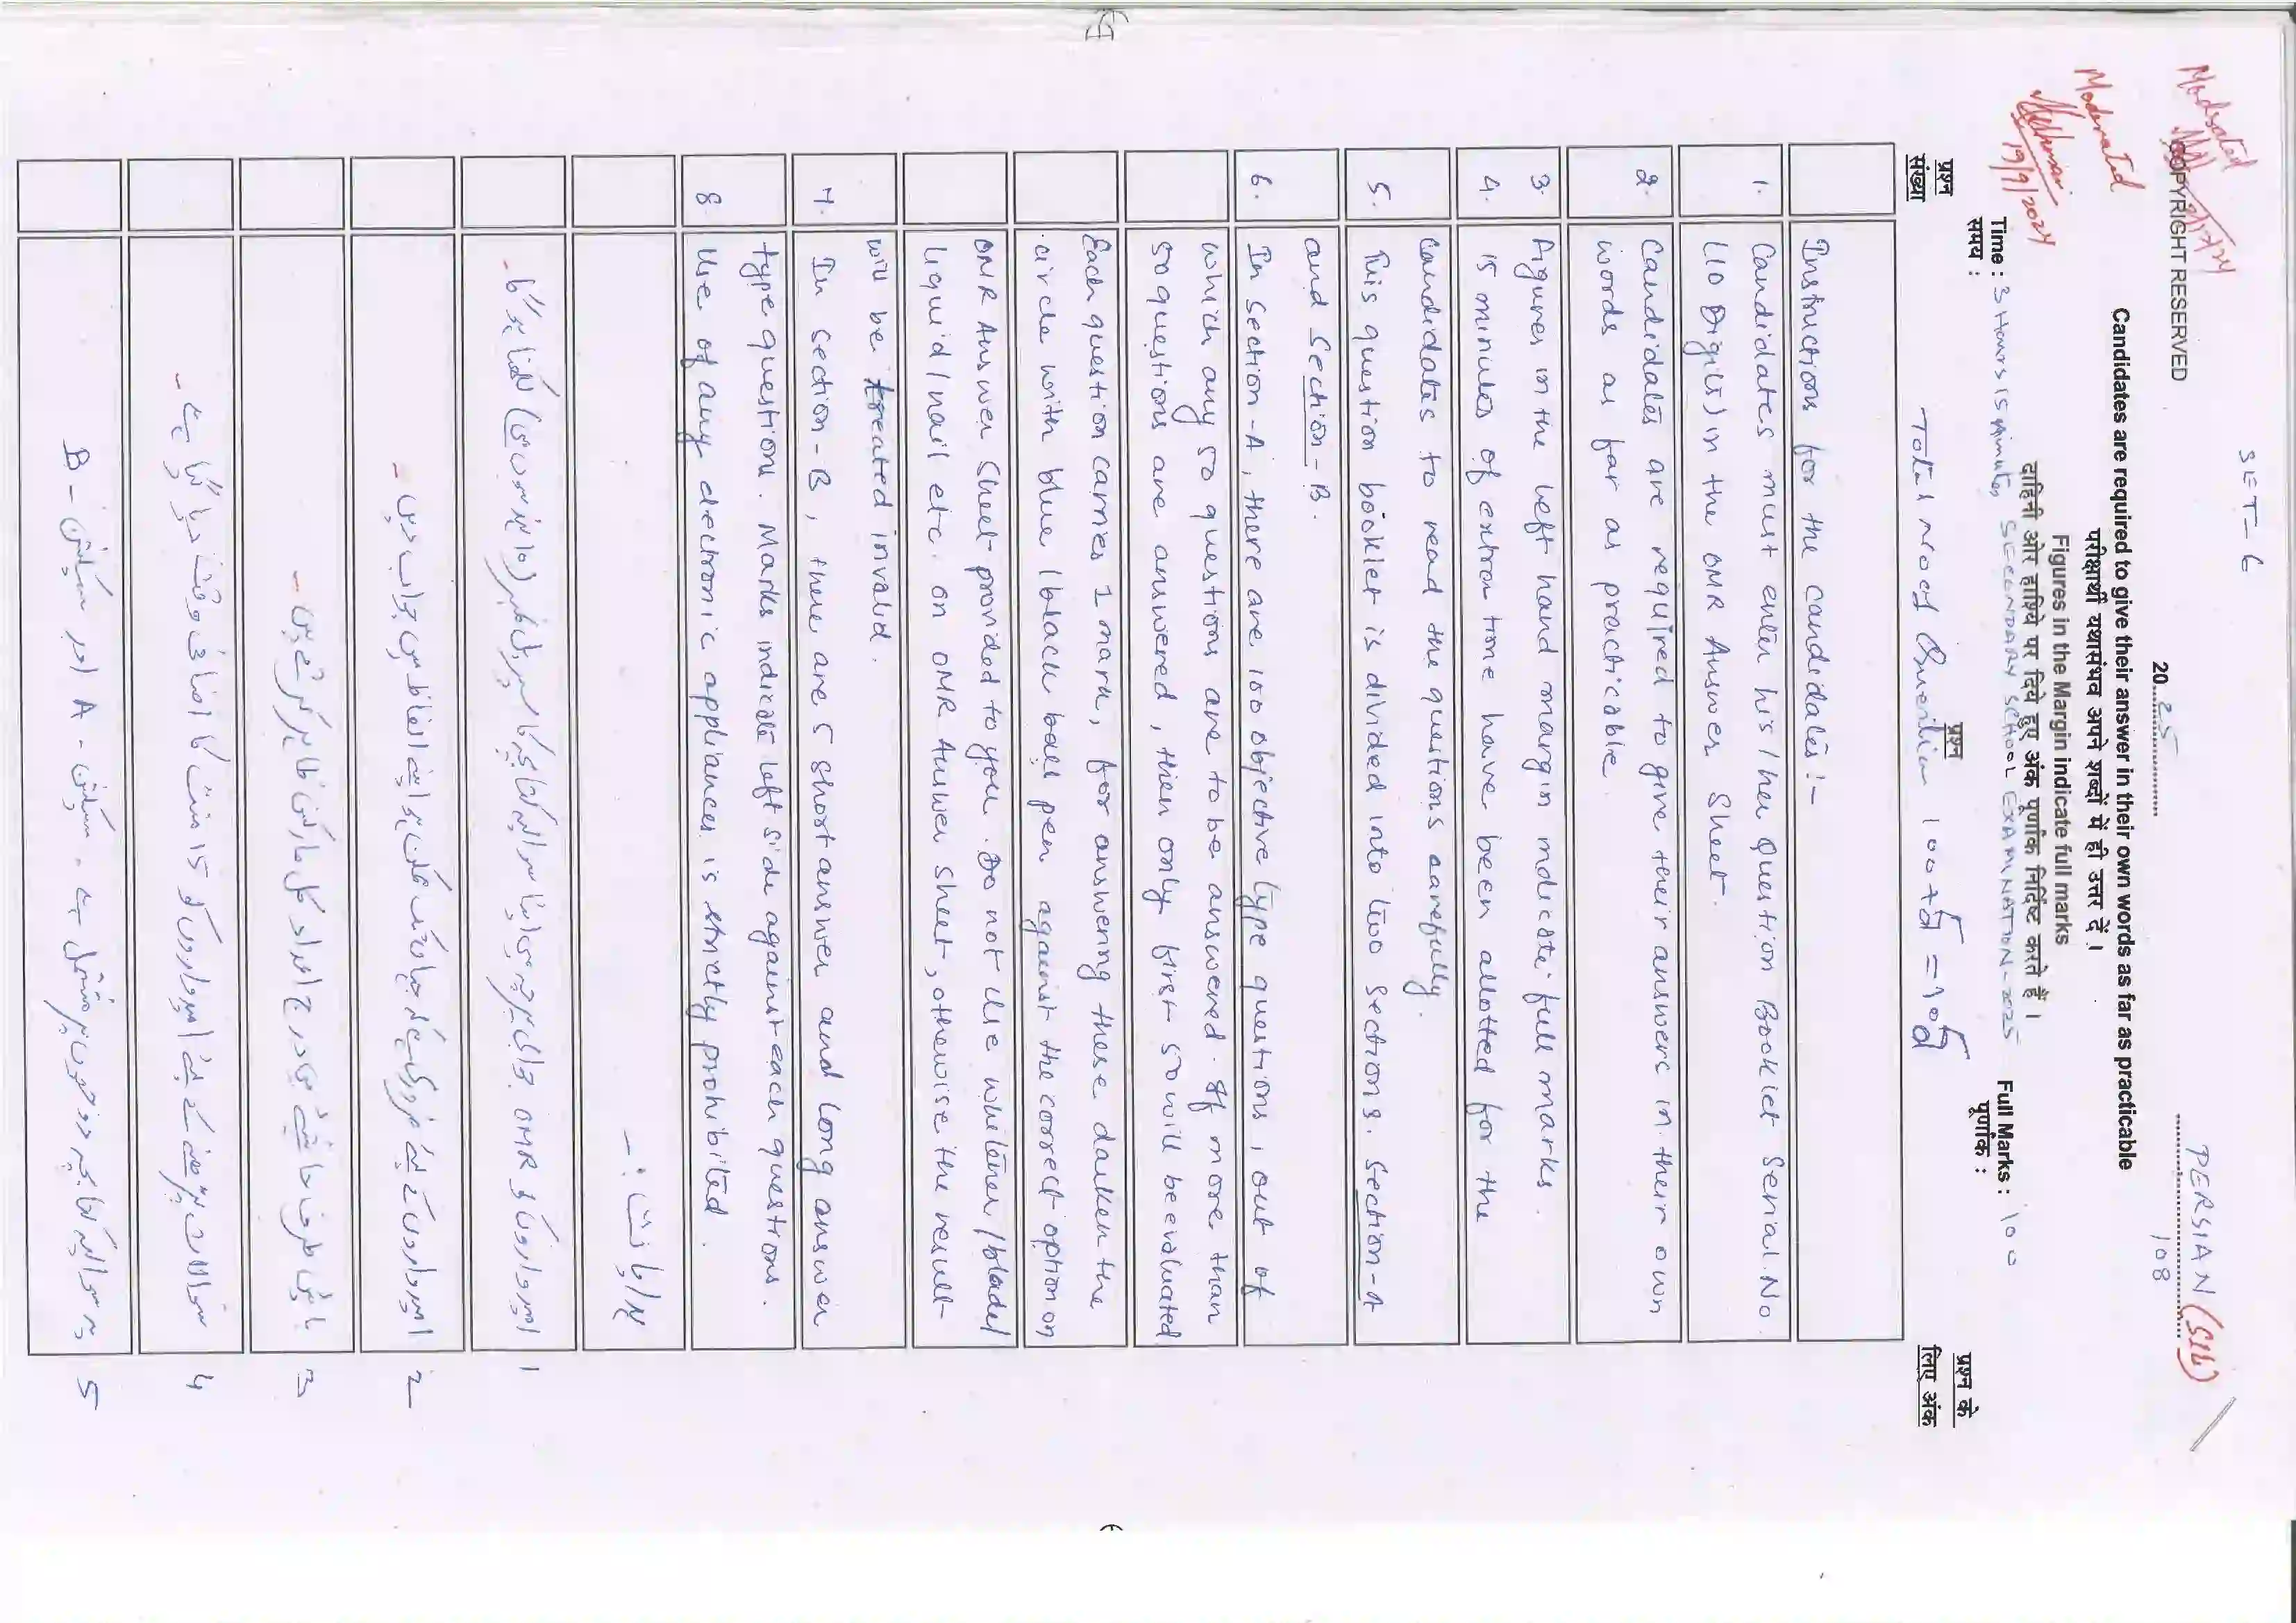 SET-6
Modrated
COPYRIGHT RESERVED
2025
PERSIAN (SIL)
108
Moderated
19/9/2024
Candidates are required to give their answer in their own words as far as practicable
परीक्षार्थी यथासंभव अपने शब्दों में ही उत्तर दें ।
Figures in the Margin indicate full marks
दाहिनी ओर हाशिये पर दिये हुए अंक पूर्णांक निर्दिष्ट करते हैं ।
Time : 3 Hours 15 Minutes SECONDARY SCHOOL EXAMINATION-2025 Full Marks : 100
समय : पूर्णांक :
प्रश्न संख्या
प्रश्न
प्रश्न के लिए अंक
Total no of Question 100+5 = 105
Instructions for the candidates :-
1. Candidates must enter his/her Question Booklet Serial No.
(10 Digits) in the OMR Answer Sheet.
2. Candidates are required to give their answers in their own
words as far as practicable.
3. Figures in the left hand margin indicate full marks.
4. 15 minutes of extra time have been allotted for the
candidates to read the questions carefully.
5. This question booklet is divided into two sections. Section-A
and Section-B.
6. In Section-A, there are 100 objective type questions, out of
which any 50 questions are to be answered. If more than
50 questions are answered, then only first 50 will be evaluated
Each question carries 1 mark, for answering these darken the
circle with blue/black ball pen against the correct option on
OMR Answer Sheet provided to you. Do not use whitener/blade/
liquid/nail etc. on OMR Answer Sheet, otherwise the result
will be treated invalid.
7. In section-B, there are 5 short answer and long answer
type question. Marks indicate left side against each questions.
8. Use of any electronic appliances is strictly prohibited.
ہدایات :-
1 امیدواروں کو OMR جوابی پرچہ میں اپنا سوالیہ کتابچہ کا سیریل نمبر (10 ہندسوں میں) لکھنا ہوگا۔
2 امیدواروں کے لئے ضروری ہے کہ جہاں تک ممکن ہو اپنے الفاظ میں جواب دیں۔
3 بائیں طرف حاشیے میں درج اعداد کل مارکس ظاہر کرتے ہیں۔
4 سوالات پڑھنے کے لئے امیدواروں کو 15 منٹ کا اضافی وقت دیا گیا ہے۔
5 یہ سوالیہ کتابچہ دو حصوں پر مشتمل ہے۔ سیکشن-A اور سیکشن-B